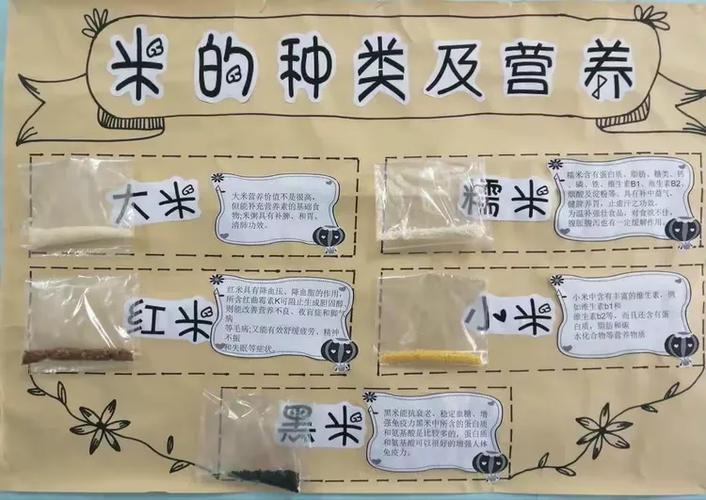 米的种类及营养
大米
大米营养价值不是很高，
但能补充营养素的基础食
物;米粥具有补脾、和胃、
清肺功效。
糯米
糯米含有蛋白质、脂肪、糖类、钙
、磷、铁、维生素B1、维生素B2、
烟酸及淀粉等。具有补中益气、
健脾养胃，止虚汗之功效。
为温补强壮食品，对食欲不佳，
腹胀腹泻也有一定缓解作用
红米
红米具有降血压、降血脂的作用，
所含红曲霉素K可阻止生成胆固醇，
则能改善营养不良、夜盲症和脚气
病
等毛病;又能有效舒缓疲劳、精神
不振
和失眠等症状。
小米
小米中含有丰富的维生素，例
如维生素b1和
维生素b2等，而且还含有蛋
白质，脂肪和碳
水化合物等营养物质
黑米
黑米能抗衰老、稳定血糖、增
强免疫力黑米中所含的蛋白质
和氨基酸是比较多的，蛋白质
和氨基酸可以很好的增强人体
免疫力。